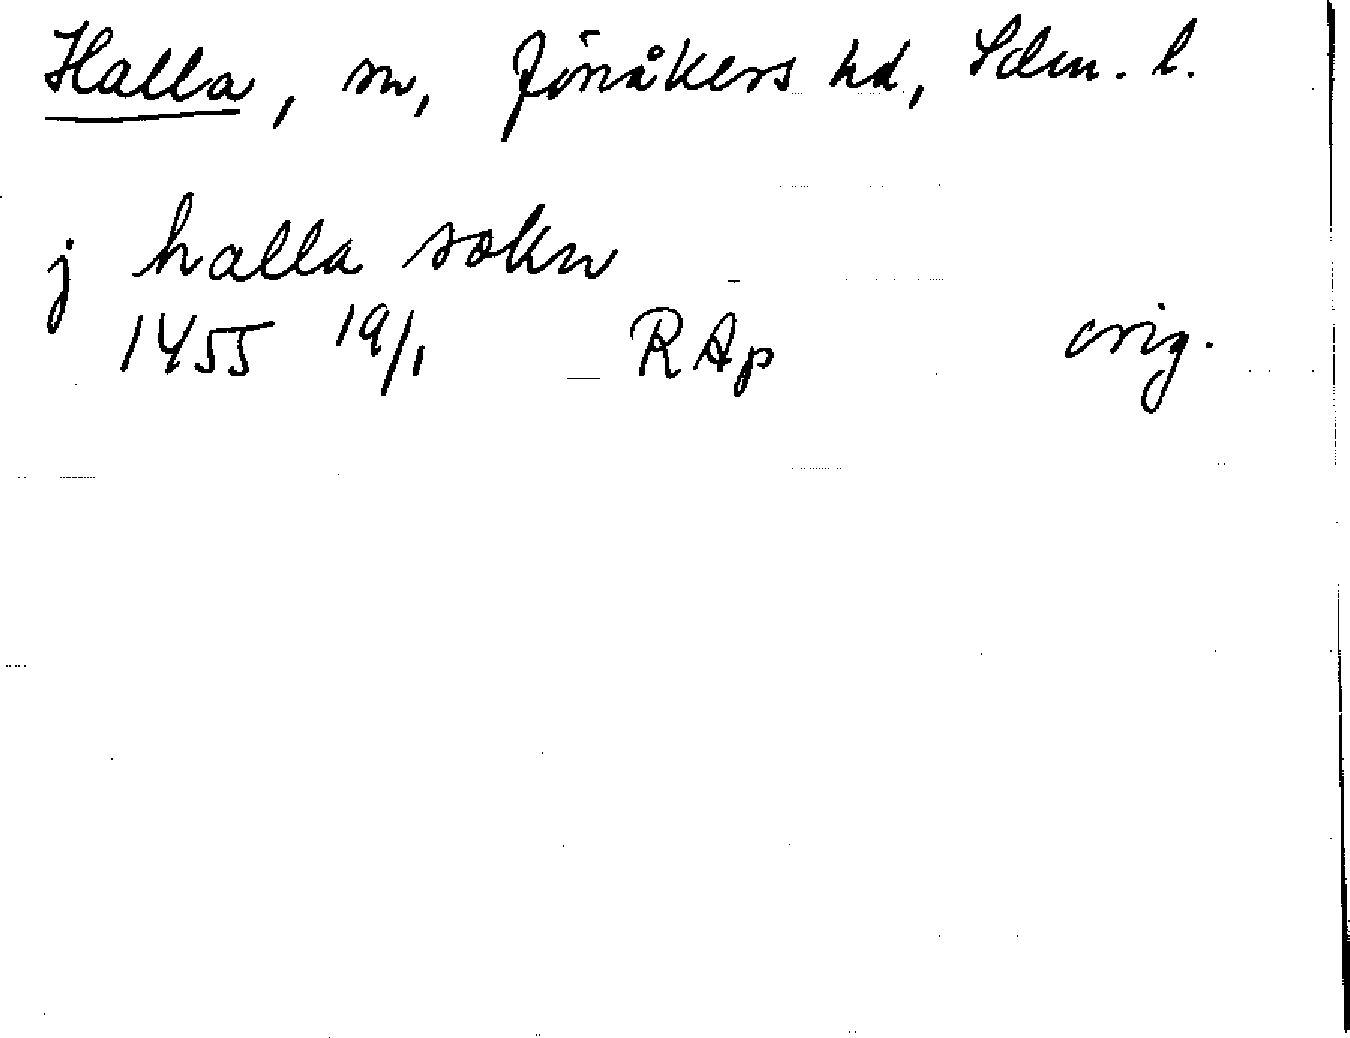 Halla, sn, Jönåkers hd, Sdm. l.
j halla sokn
1455 19/1 RAp orig.